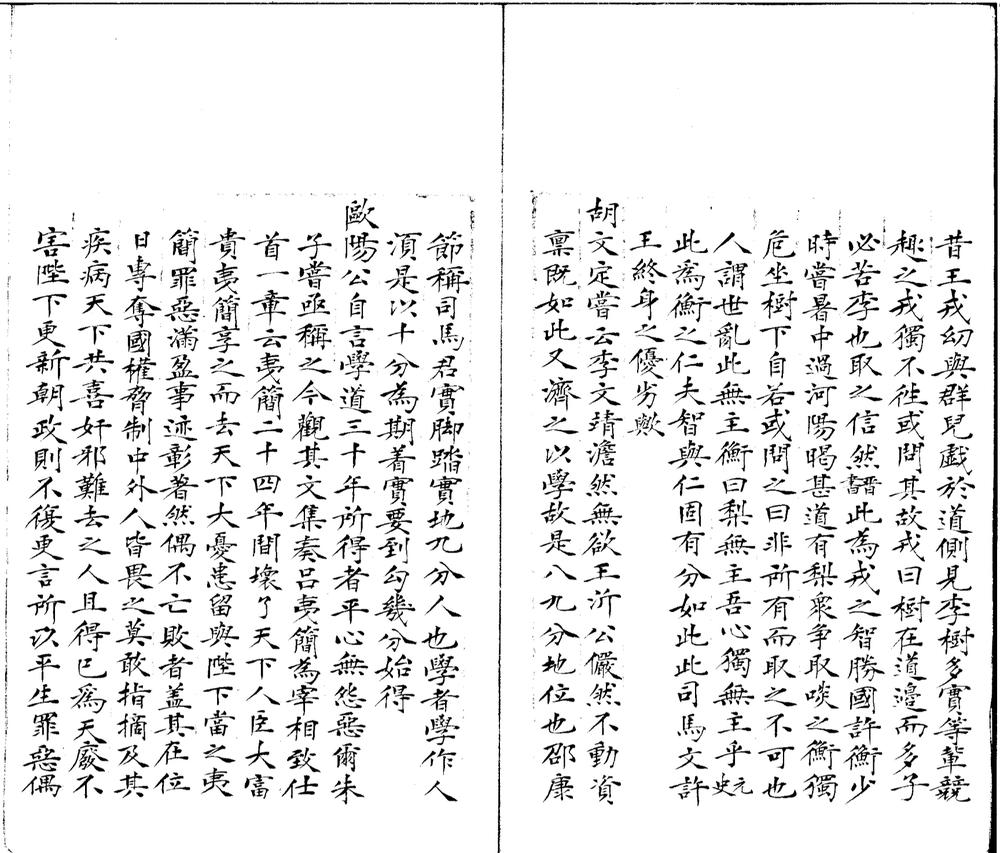 昔王戎幼與群兒戲於道側見李樹多實等輩競
趣之戎獨不徃或問其故戎曰樹在道邊而多子
必苦李也取之信然晋書此為戎之智勝國許衡少
時嘗暑中過河陽暍甚道有梨衆争取啖之衡獨
危坐樹下自若或問之曰非所有而取之不可也
人謂世亂此無主衡曰梨無主吾心獨無主乎元史
此爲衡之仁夫智與仁固有分如此此司馬文許
王終身之優劣歟
胡文定嘗云李文靖澹然無欲王沂公儼然不動資
禀既如此又濟之以學故是八九分地位也邵康
節稱司馬君實脚踏實地九分人也學者學作人
湏是以十分為期着實要到勾幾分始得
歐陽公自言學道三十年所得者平心無怨惡爾朱
子嘗亟稱之今觀其文集奏呂夷簡為宰相致仕
首一章云夷簡二十四年間壊了天下人臣大富
貴夷簡享之而去天下大憂患留與陛下當之夷
簡罪惡滿盈事迹彰著然偶不亡敗者盖其在位
日專奪國權脅制中外人皆畏之莫敢指摘及其
疾病天下共喜奸邪難去之人且得已爲天廢不
害陛下更新朝政則不復更言所以平生罪惡偶